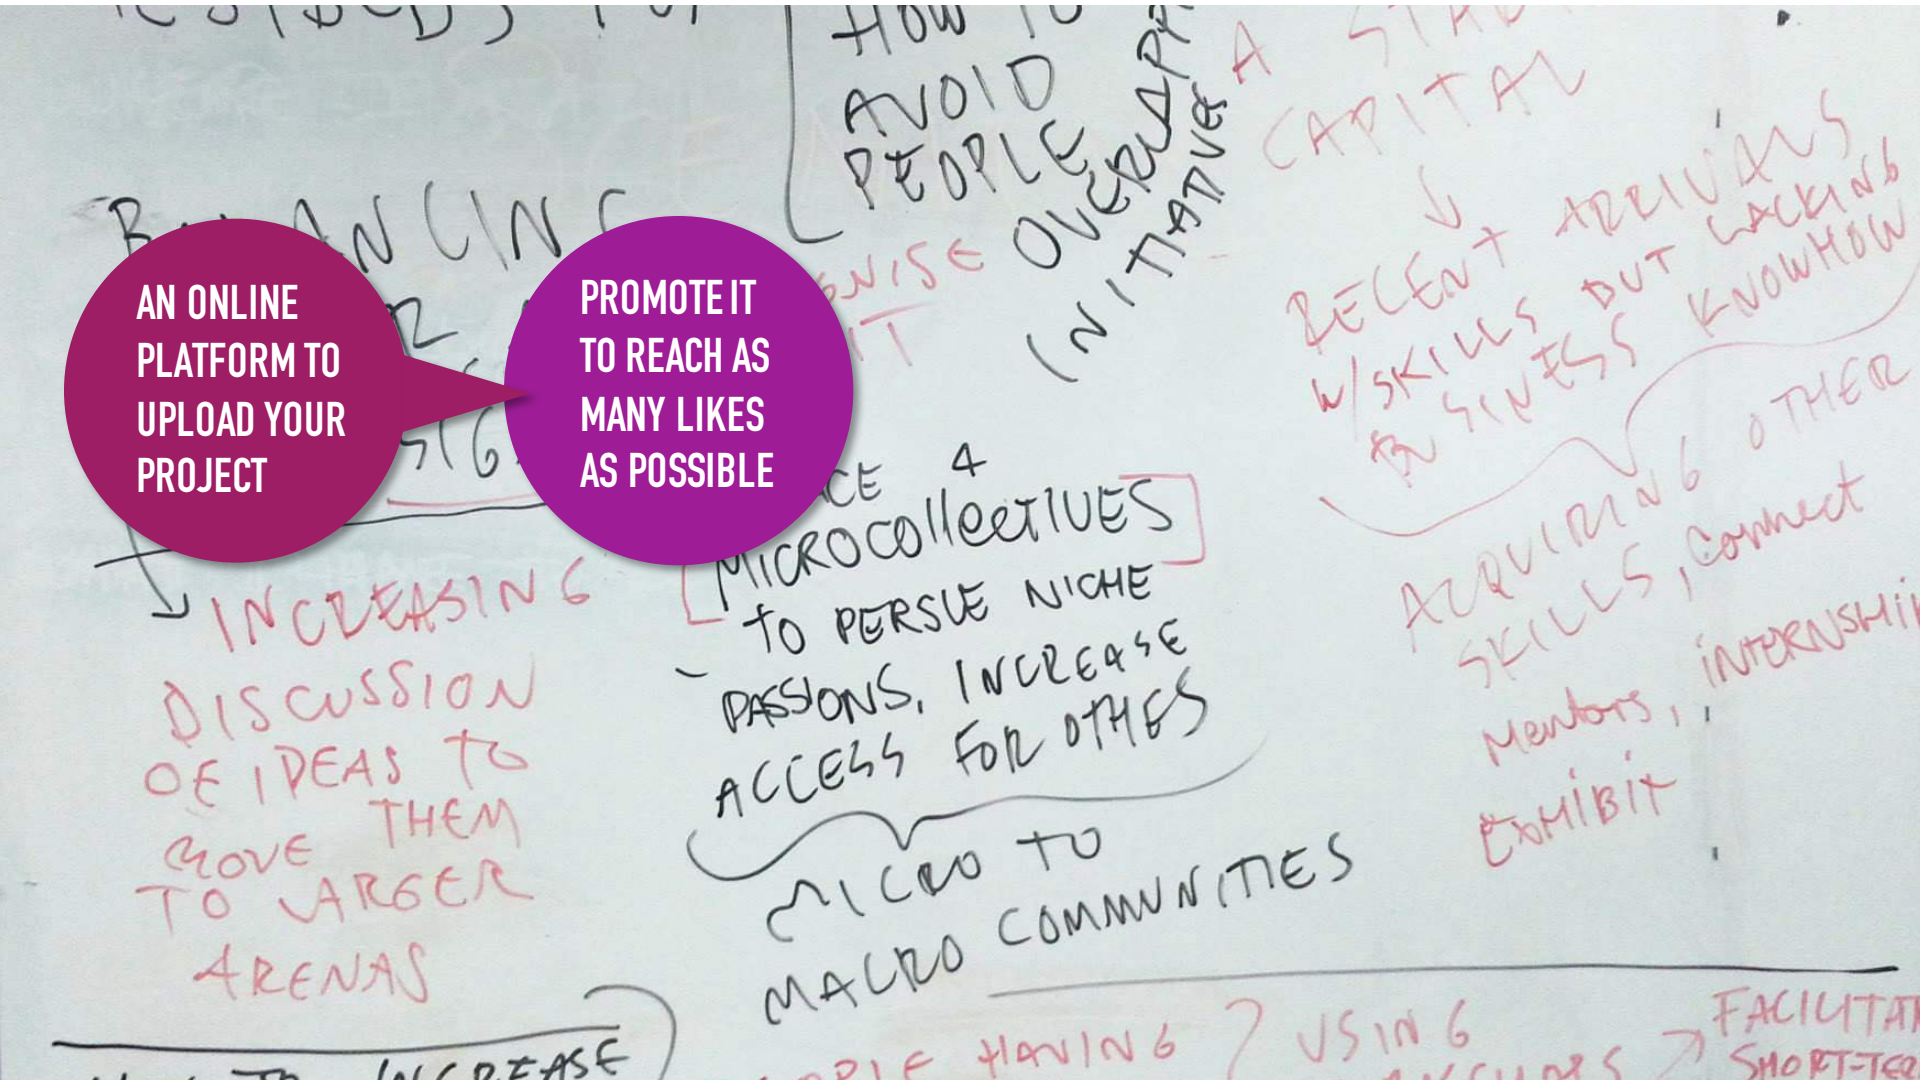 AN ONLINE
PLATFORM TO
UPLOAD YOUR
PROJECT
PROMOTE IT
TO REACH AS
MANY LIKES
AS POSSIBLE
HOW TO
AVOID
PEOPLE
OVERLAPP
INITIATIVES
A
CAPITAL
RECENT ARRIVALS
W/SKILLS BUT LACKING
BUSINESS KNOWHOW
ACQUIRING OTHER
SKILLS, connect
Mentors, iNTERNSHiP
EXHIBIT
INCREASING
DISCUSSION
OF IDEAS TO
MOVE THEM
TO LARGER
ARENAS
4
MICROCOllectIVES
TO PERSUE NICHE
PASSIONS, INCREASE
ACCESS FOR OTHES
MICRO TO
MACRO COMMUNITIES
TO INCREASE
HAVING
USING
FACILITAT
SHORT-TER